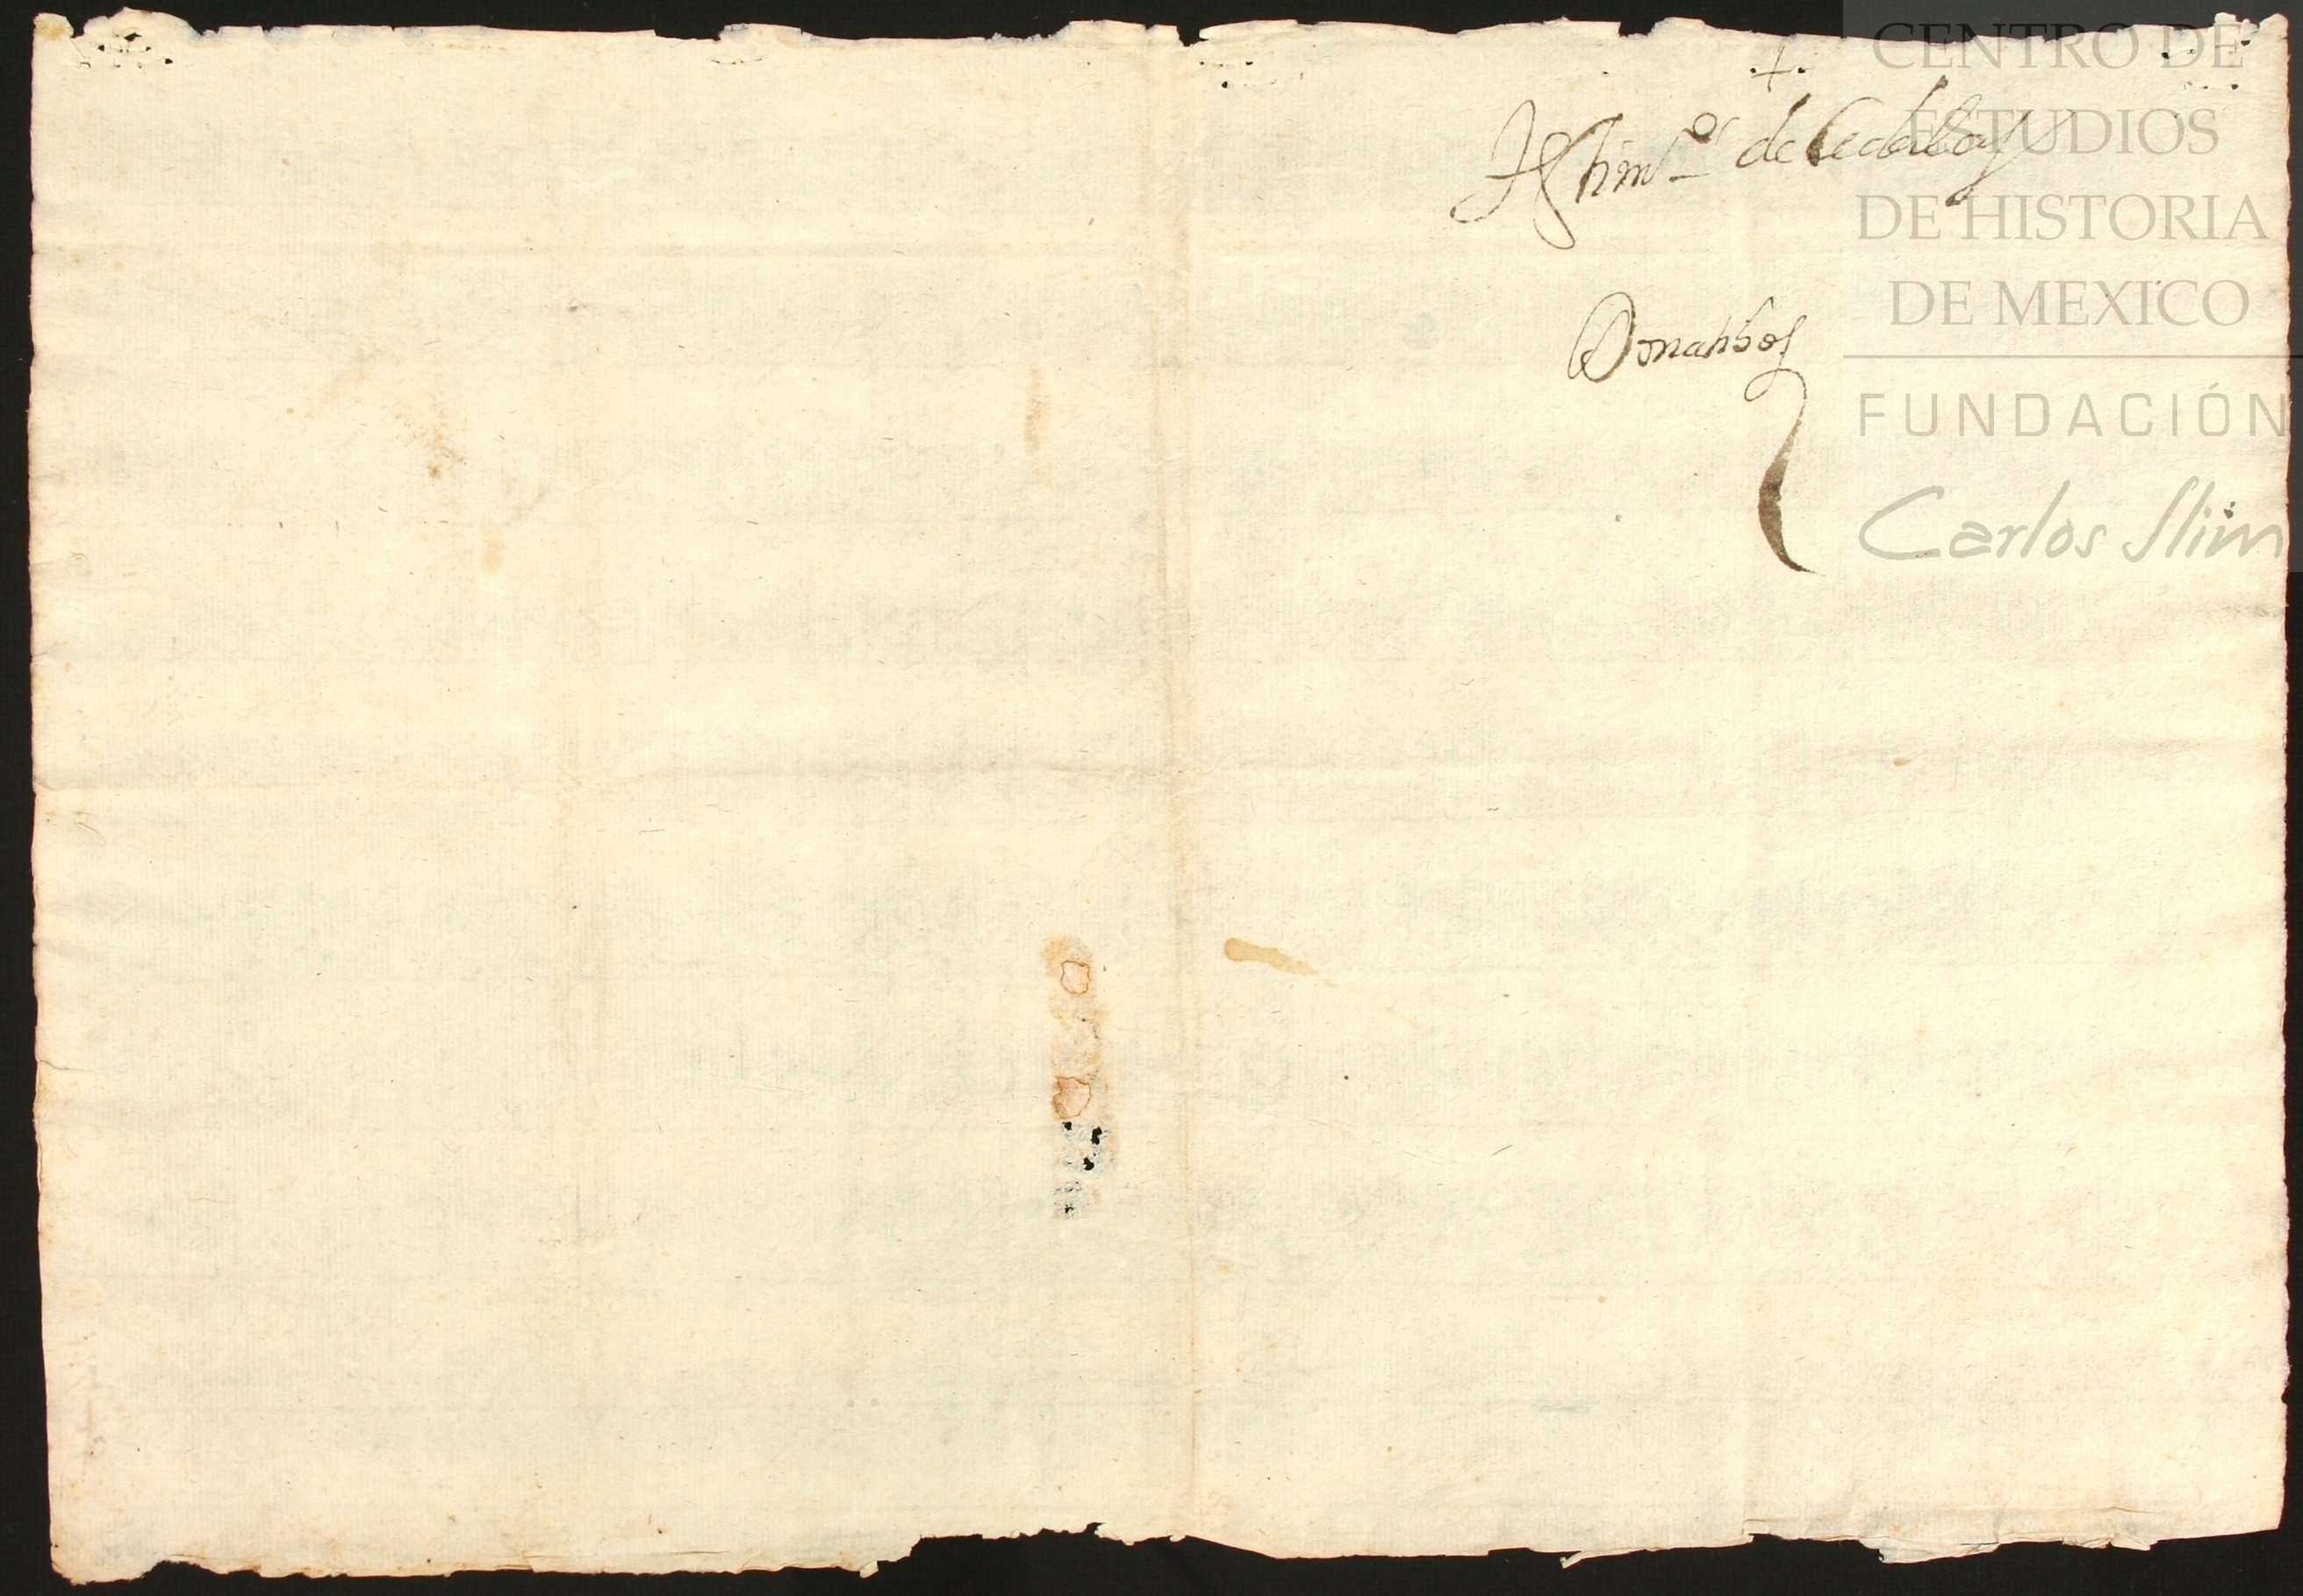 Testimº de Cedulas
Donatibos
CENTRO DE
ESTUDIOS
DE HISTORIA
DE MEXICO
FUNDACIÓN
Carlos Slim